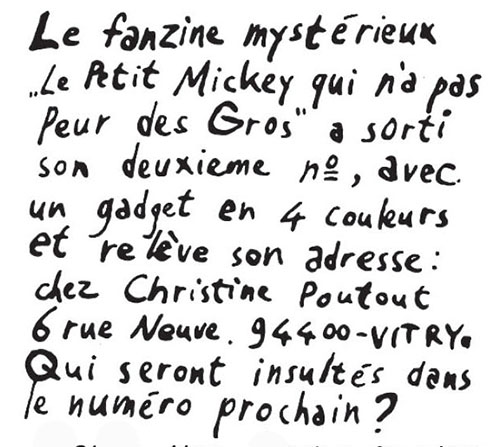 Le fanzine mystérieux
„Le Petit Mickey qui n'a pas
Peur des Gros" a sorti
son deuxieme nº, avec
un gadget en 4 couleurs
et relève son adresse :
chez Christine Poutout
6 rue Neuve. 94400-VITRY.
Qui seront insultés dans
le numéro prochain ?